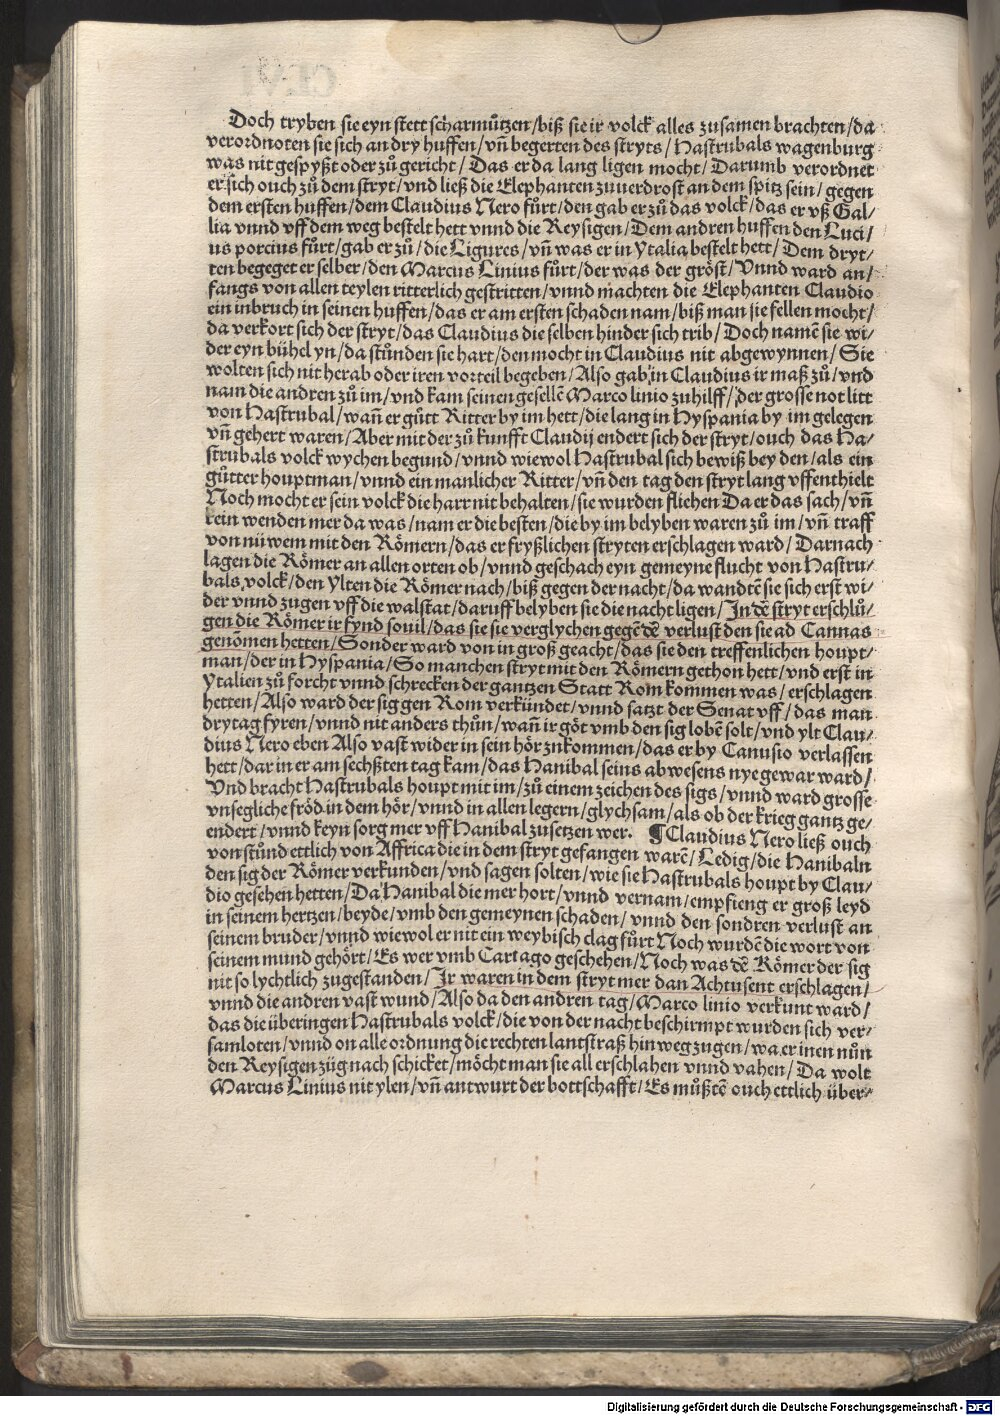 Doch tryben sie eyn stett scharmützen/biß sie ir volck alles zusamen brachten/da
verordnoten sie sich an dry huffen/vn̄ begerten des stryts/Hastrubals wagenburg
was nit gespyßt oder zů gericht/Das er da lang ligen mocht/Darumb verordnet
er sich ouch zů dem stryt/vnd ließ die Elephanten zuuerdrost an dem spitz sein/gegen
dem ersten huffen/dem Claudius Nero fůrt/den gab er zů das volck/das er vß Gal/
lia vnnd vff dem weg bestelt hett vnnd die Reysigen/Dem andren huffen den Luci/
us porcius fůrt/gab er zů/die Ligures/vn̄ was er in Ytalia bestelt hett/Dem dryt/
ten begeget er selber/den Marcus Linius fůrt/der was der gröst/Vnnd ward an/
fangs von allen teylen ritterlich gestritten/vnnd machten die Elephanten Claudio
ein inbruch in seinen huffen/das er am ersten schaden nam/biß man sie fellen mocht/
da verkort sich der stryt/das Claudius die selben hinder sich trib/Doch namē sie wi/
der eyn bühel yn/da stůnden sie hart/den mocht in Claudius nit abgewynnen/Sie
wolten sich nit herab oder iren vorteil begeben/Also gab in Claudius ir maß zů/vnd
nam die andren zů im/vnd kam seinen gesellē Marco linio zuhilff/der grosse not litt
von Hastrubal/wan̄ er gůtt Ritter by im hett/die lang in Hyspania by im gelegen
vn̄ gehert waren/Aber mit der zů kunfft Claudij endert sich der stryt/ouch das Ha/
strubals volck wychen begund/vnnd wiewol Hastrubal sich bewiß bey den/als ein
gůtter houptman/vnnd ein manlicher Ritter/vn̄ den tag den stryt lang vffenthielt
Noch mocht er sein volck die harr nit behalten/sie wurden fliehen Da er das sach/vn̄
kein wenden mer da was/nam er die besten/die by im belyben waren zů im/vn̄ traff
von nüwem mit den Römern/das er fryßlichen stryten erschlagen ward/Darnach
lagen die Römer an allen orten ob/vnnd geschach eyn gemeyne flucht von Hastru/
bals volck/den ylten die Römer nach/biß gegen der nacht/da wandtē sie sich erst wi/
der vnnd zugen vff die walstat/daruff belyben sie die nacht ligen/In dē stryt erschlů/
gen die Römer ir fynd souil/das sie sie verglychen gegē dē verlust den sie ad Cannas
genōmen hetten/Sonder ward von in groß geacht/das sie den treffenlichen houpt/
man/der in Hyspania/So manchen stryt mit den Römern gethon hett/vnd erst in
Ytalien zů forcht vnnd schrecken der gantzen Statt Rom kommen was/erschlagen
hetten/Also ward der sig gen Rom verkündet/vnnd satzt der Senat vff/das man
dry tag fyren/vnnd nit anders thůn/wan̄ ir göt vmb den sig lobē solt/vnd ylt Clau/
dius Nero eben Also vast wider in sein hör znkommen/das er by Canusio verlassen
hett/dar in er am sechßten tag kam/das Hanibal seins abwesens nye gewar ward/
Vnd bracht Hastrubals houpt mit im/zů einem zeichen des sigs/vnnd ward grosse
vnsegliche fröd in dem hör/vnnd in allen legern/glych sam/als ob der krieg gantz ge/
endert/vnnd keyn sorg mer vff Hanibal zusetzen wer. ¶ Claudius Nero ließ ouch
von stůnd ettlich von Affrica die in dem stryt gefangen warē/Ledig/die Hanibaln
den sig der Römer verkunden/vnd sagen solten/wie sie Hastrubals houpt by Clau/
dio gesehen hetten/Da Hanibal die mer hort/vnnd vernam/empfieng er groß leyd
in seinem hertzen/beyde/vmb den gemeynen schaden/vnnd den sondren verlust an
seinem bruder/vnnd wiewol er nit ein weybisch clag fůrt Noch wurdē die wort von
seinem mund gehört/Es wer vmb Cartago geschehen/Noch was dē Römer der sig
nit so lychtlich zugestanden/Ir waren in dem stryt mer dan Achtusent erschlagen/
vnnd die andren vast wund/Also da den andren tag/Marco linio verkunt ward/
das die überingen Hastrubals volck/die von der nacht beschirmpt wurden sich ver/
samloten/vnnd on alle ordnung die rechten lantstraß hinweg zugen/wa er inen nůn
den Reysigen züg nach schicket/möcht man sie all erschlahen vnnd vahen/Da wolt
Marcus Linius nit ylen/vn̄ antwurt der bottschafft/Es můßtē ouch ettlich über/
Digitalisierung gefördert durch die Deutsche Forschungsgemeinschaft - DFG